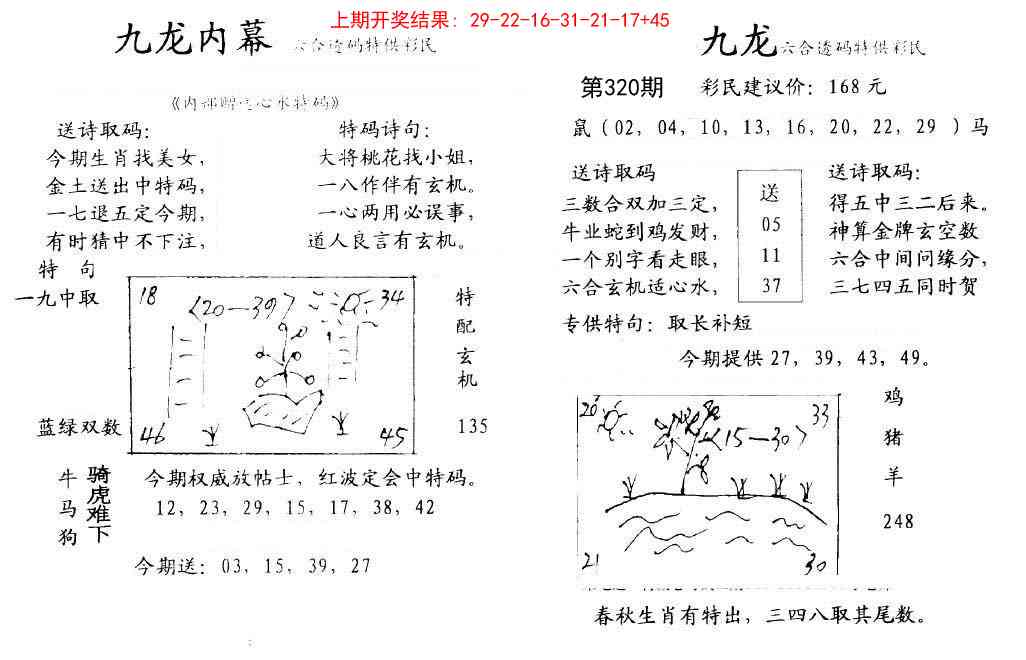 上期开奖结果: 29-22-16-31-21-17+45
九龙内幕 六合透码特供彩民
送诗取码:
今期生肖找美女,
金土送出中特码,
一七退五定今期,
有时猜中不下注,
特码诗句:
大将桃花找小姐,
一八作伴有玄机。
一心两用必误事,
道人良言有玄机。
特 句
一九中取
蓝绿双数
18
<20—39>
34
46
45
特
配
玄
机
135
牛
马
狗
骑
虎
难
下
今期权威放帖士, 红波定会中特码。
12, 23, 29, 15, 17, 38, 42
今期送: 03, 15, 39, 27
九龙 六合透码特供彩民
第320期 彩民建议价: 168 元
鼠 ( 02, 04, 10, 13, 16, 20, 22, 29 ) 马
送诗取码
三数合双加三定,
牛业蛇到鸡发财,
一个别字看走眼,
六合玄机适心水,
送
05
11
37
送诗取码:
得五中三二后来。
神算金牌玄空数
六合中间问缘分,
三七四五同时贺
专供特句: 取长补短
今期提供 27, 39, 43, 49。
20
33
<15—30>
21
30
鸡
猪
羊
248
春秋生肖有特出, 三四八取其尾数。